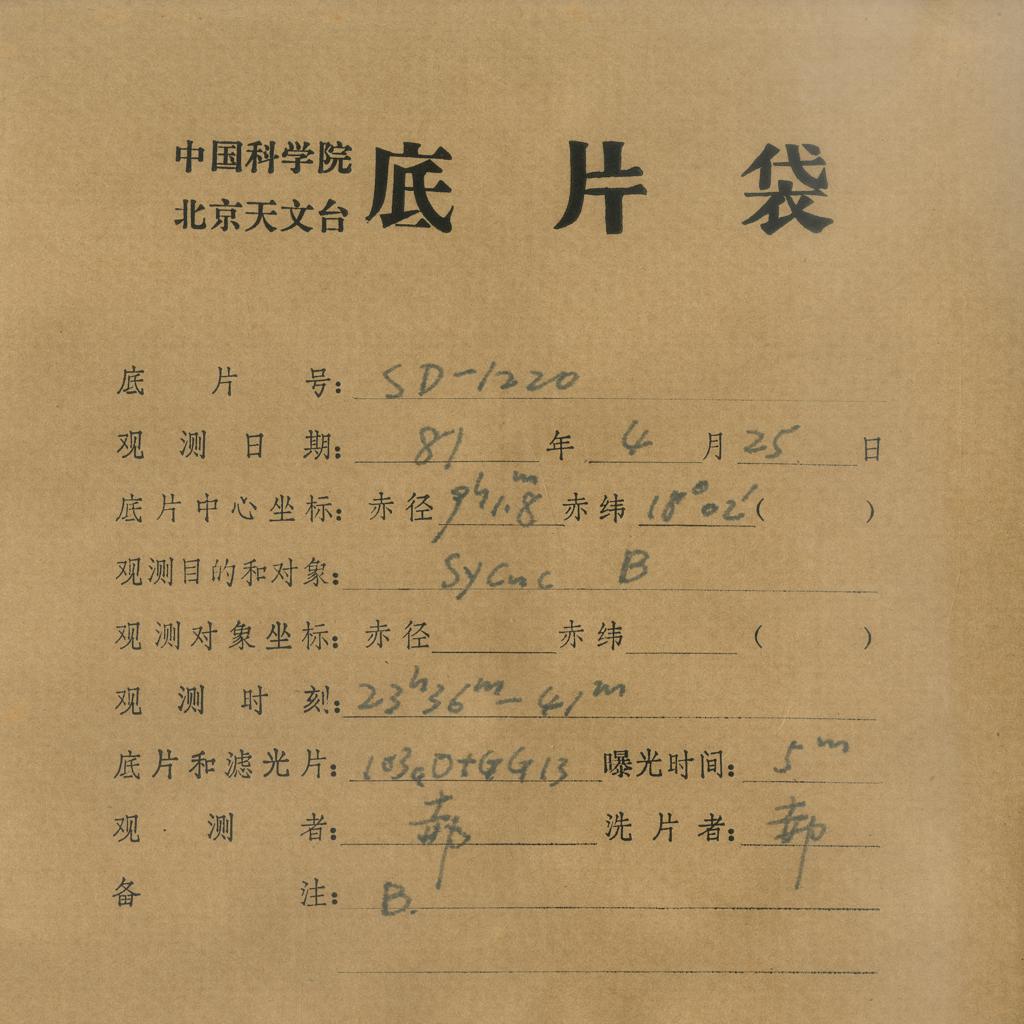 中国科学院
北京天文台 底片袋
底片号: SD-1220
观测日期: 81年4月25日
底片中心坐标: 赤径 9h1.8m 赤纬 18°02′( )
观测目的和对象: SyCnc B
观测对象坐标: 赤径 赤纬 ( )
观测时刻: 23h36m-41m
底片和滤光片: 103aD+GG13 曝光时间: 5m
观测者: 郝 洗片者: 郝
备注: B.